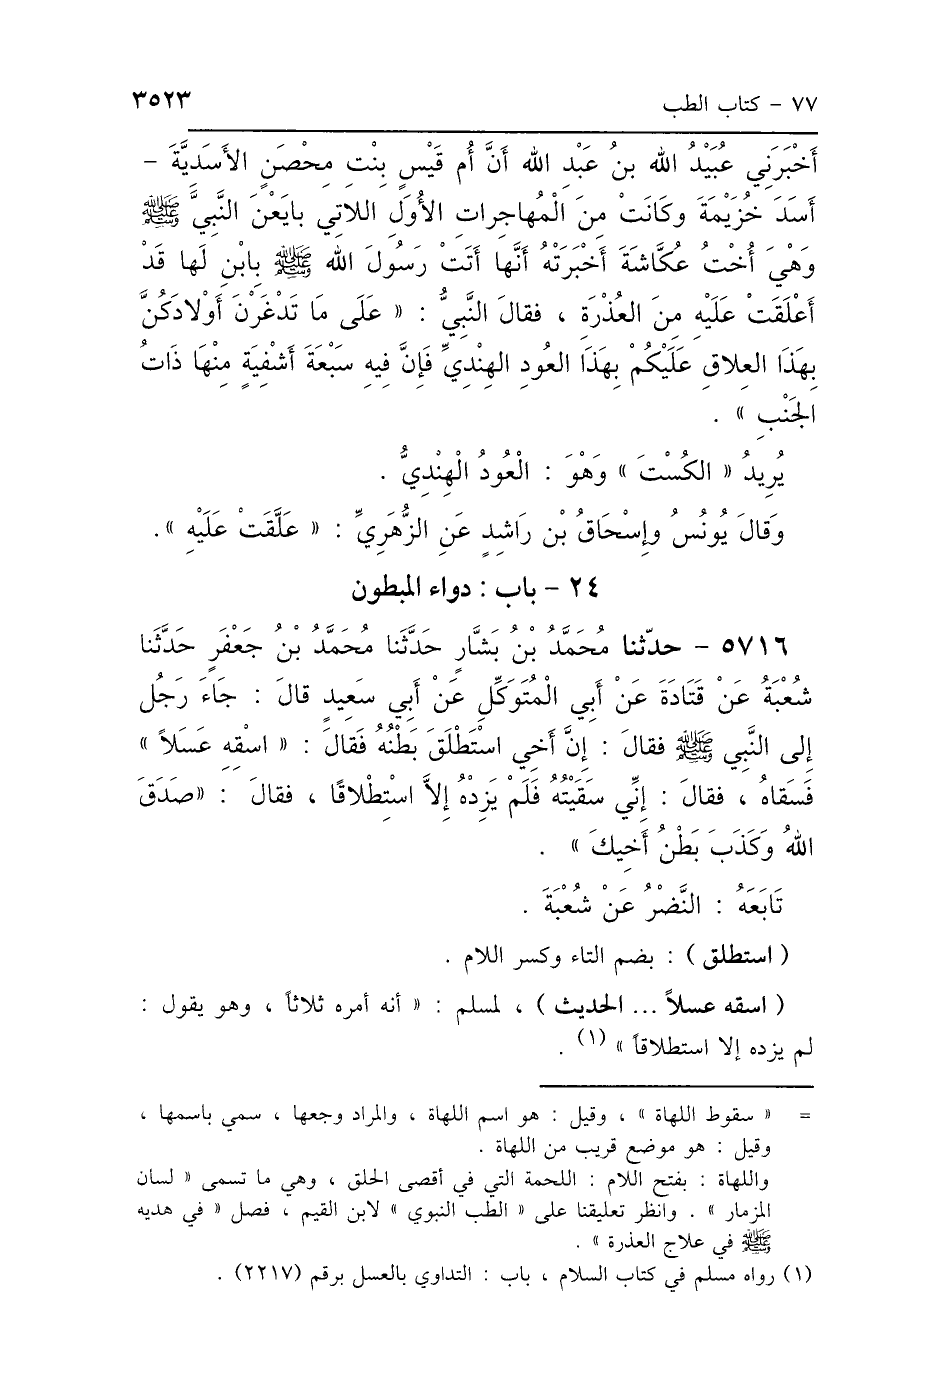 ٧٧ - كتاب الطب ٣٥٢٣
أَخْبَرَني عُبَيْدُ الله بنُ عَبْدِ الله أَنَّ أُم قَيْسٍ بِنْتِ مِحْصَنٍ الأسَديَّةَ -
أسَدَ خُزَيْمَةَ وكَانَتْ مِنَ الْمُهاجِراتِ الأُوَلِ اللاتي بايَعْنَ النَّبيَّ ﷺ
وَهْيَ أُخْتُ عُكَّاشَةَ أَخْبَرَتْهُ أَنَّها أَتَتْ رَسُولَ الله ﷺ بِابْنٍ لَها قَدْ
أَعْلَقَتْ عَلَيْهِ مِنَ العُذْرَةِ ، فقالَ النَّبيُّ : « عَلَى مَا تَدْغَرْنَ أَوْلادَكُنَّ
بِهَذَا العِلاقِ عَلَيْكُمْ بِهَذَا العُودِ الهِنْديِّ فَإِنَّ فِيهِ سَبْعَةَ أَشْفِيَةٍ مِنْهَا ذَاتُ
الجَنْبِ » .
يُرِيدُ « الكُسْتَ » وَهْوَ : الْعُودُ الْهِنْدِيُّ .
وَقالَ يُونُسُ وإِسْحَاقُ بْن رَاشِدٍ عَنِ الزُّهَرِيِّ : « عَلَّقَتْ عَلَيْهِ ».
٢٤ - باب : دواء المبطون
٥٧١٦ - حدّثنا مُحَمَّدُ بْنُ بَشَّارٍ حَدَّثَنا مُحَمَّدُ بْنُ جَعْفَرٍ حَدَّثَنا
شُعْبَةُ عَنْ قَتَادَةَ عَنْ أَبي الْمُتَوَكِّلِ عَنْ أَبي سَعِيدٍ قالَ : جَاءَ رَجُلٌ
إلى النَّبي ﷺ فقالَ : إِنَّ أَخي اسْتَطْلَقَ بَطْنُهُ فَقالَ : « اسْقِهِ عَسَلاً »
فَسَقاهُ ، فقالَ : إنِّي سَقَيْتُهُ فَلَمْ يَزِدْهُ إلاَّ اسْتِطْلاقًا ، فقالَ : «صَدَقَ
اللهُ وَكَذَبَ بَطْنُ أَخِيكَ » .
تَابَعَهُ : النَّضْرُ عَنْ شُعْبَةَ .
( استطلق ) : بضم التاء وكسر اللام .
( اسقه عسلاً ... الحديث ) ، لمسلم : « أنه أمره ثلاثاً ، وهو يقول :
لم يزده إلا استطلاقاً » (١) .
= « سقوط اللهاة » ، وقيل : هو اسم اللهاة ، والمراد وجعها ، سمي باسمها ،
وقيل : هو موضع قريب من اللهاة .
واللهاة : بفتح اللام : اللحمة التي في أقصى الحلق ، وهي ما تسمى « لسان
المزمار » . وانظر تعليقنا على « الطب النبوي » لابن القيم ، فصل « في هديه
ﷺ في علاج العذرة » .
(١) رواه مسلم في كتاب السلام ، باب : التداوي بالعسل برقم (٢٢١٧) .